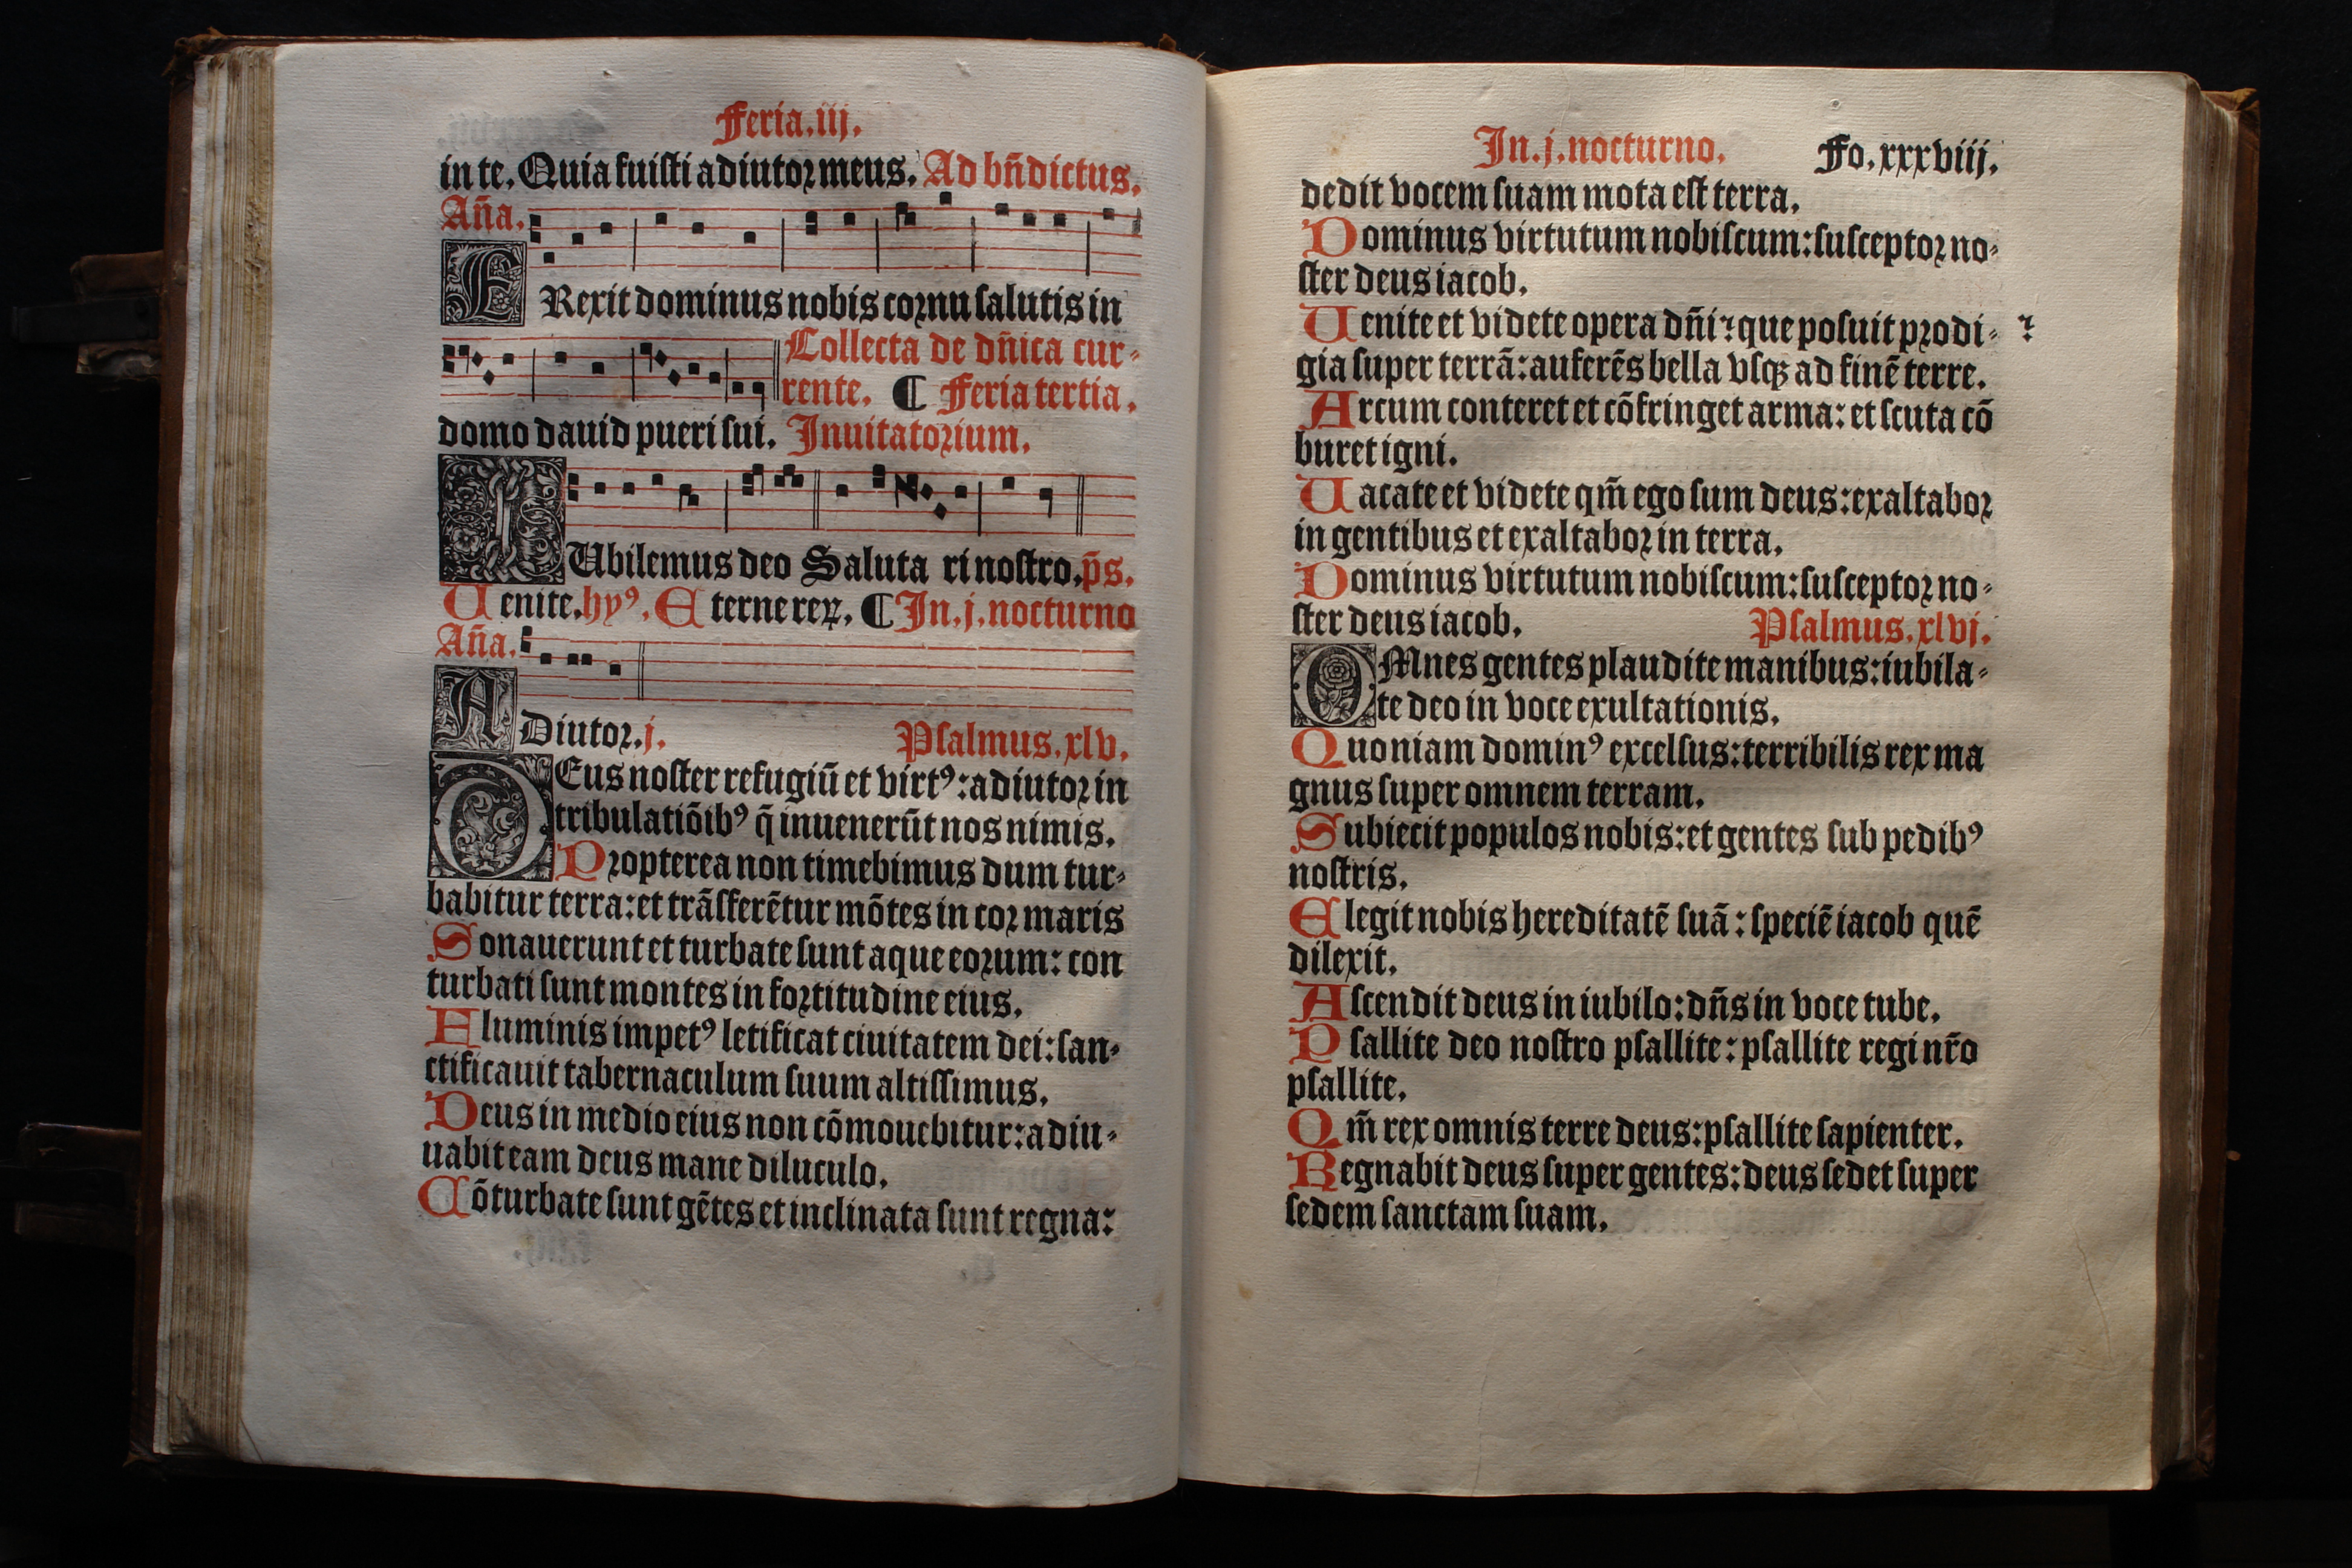 Feria.iij.
in te. Quia fuisti adiutor meus. Ad bñdictus.
Aña.
ERexit dominus nobis cornu salutis in
Collecta de dñica cur-
rente. ¶ Feria tertia.
domo dauid pueri sui. Inuitatorium.
IUbilemus deo Saluta ri nostro. p̄s.
Uenite. hyꝰ. Eterne rex. ¶ In.j.nocturno
Aña.
ADiutor.j. Psalmus.xlv.
DEus noster refugiū et virtꝰ: adiutor in
tribulatiōibꝰ q̄ inuenerūt nos nimis.
Propterea non timebimus dum tur-
babitur terra: et trāsferētur mōtes in cor maris
Sonauerunt et turbate sunt aque eorum: con
turbati sunt montes in fortitudine eius.
Fluminis impetꝰ letificat ciuitatem dei: san-
ctificauit tabernaculum suum altissimus.
Deus in medio eius non cōmouebitur: adiu-
uabit eam deus mane diluculo.
Cōturbate sunt gētes et inclinata sunt regna:
In.j.nocturno. Fo.xxxviij.
dedit vocem suam mota est terra.
Dominus virtutum nobiscum: susceptor no-
ster deus iacob.
Uenite et videte opera dñi: que posuit prodi-
gia super terrā: auferēs bella vsqꝫ ad finē terre.
Arcum conteret et cōfringet arma: et scuta cō
buret igni.
Uacate et videte qm̄ ego sum deus: exaltabor
in gentibus et exaltabor in terra.
Dominus virtutum nobiscum: susceptor no-
ster deus iacob. Psalmus.xlvj.
OMnes gentes plaudite manibus: iubila-
te deo in voce exultationis.
Quoniam dominꝰ excelsus: terribilis rex ma
gnus super omnem terram.
Subiecit populos nobis: et gentes sub pedibꝰ
nostris.
Elegit nobis hereditatē suā: speciē iacob quē
dilexit.
Ascendit deus in iubilo: dñs in voce tube.
Psallite deo nostro psallite: psallite regi nr̄o
psallite.
Qm̄ rex omnis terre deus: psallite sapienter.
Regnabit deus super gentes: deus sedet super
sedem sanctam suam.